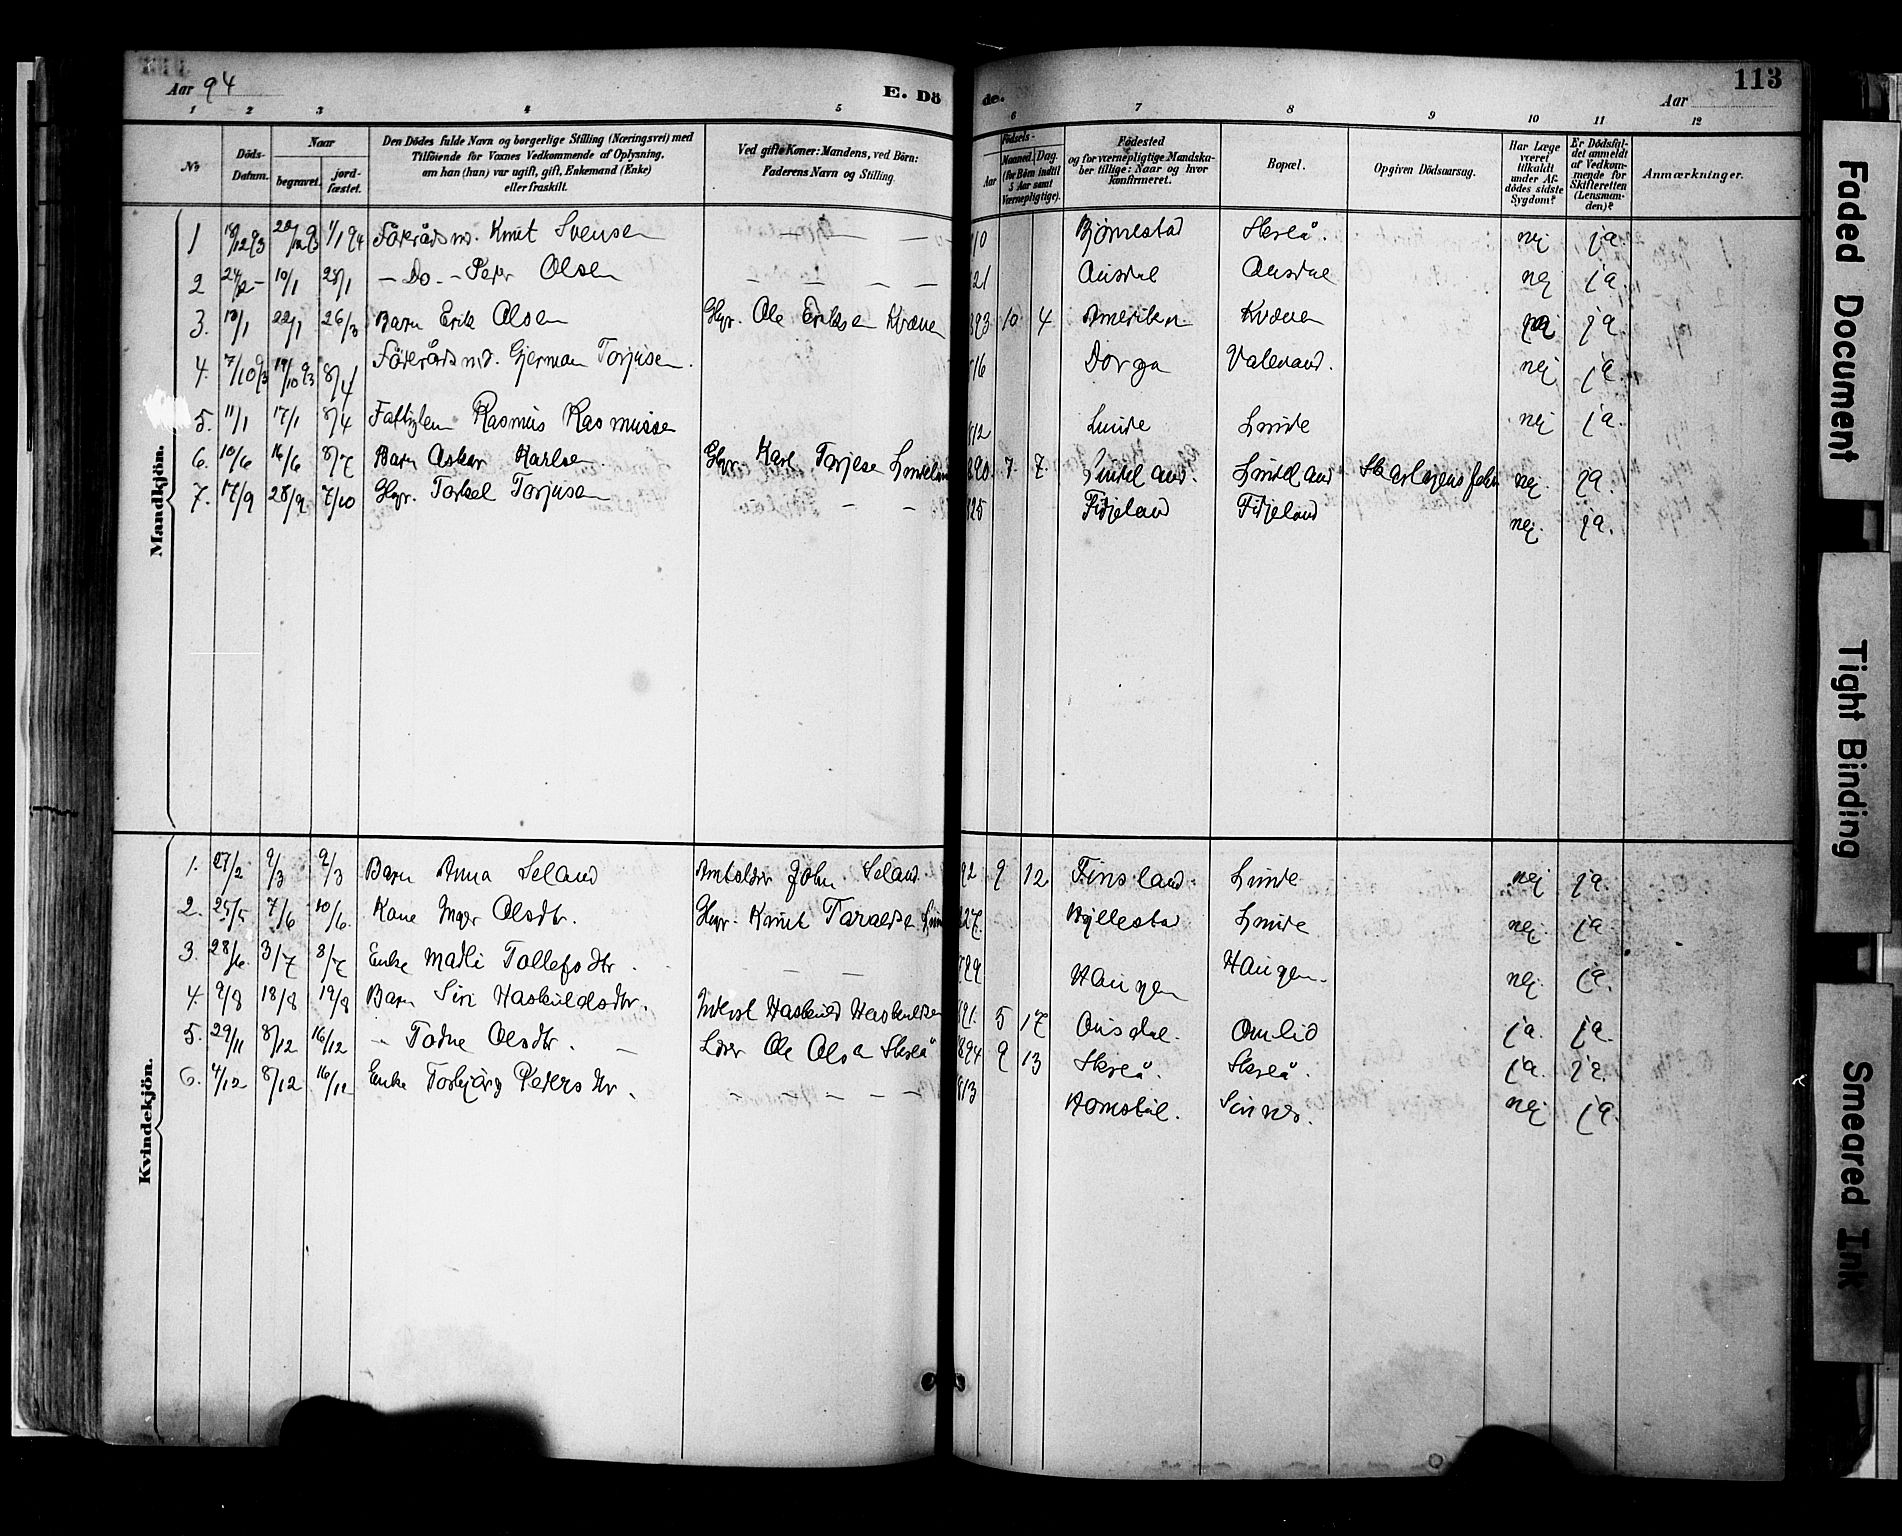 Aar 94
E. Dö
de.
Aar
113
1 2 3 4 5 6 7 8 9 10 11 12
No
Döds-Datum.
Naar
begravet.
jord-fæstet.
Den Dödes fulde Navn og borgerlige Stilling (Næringsvei) med
Tilföiende for Voxnes Vedkommende af Oplysning,
om han (hun) var ugift, gift, Enkemand (Enke)
eller fraskilt.
Ved gifte Koner: Mandens, ved Börn:
Faderens Navn og Stilling.
Födsels-
Aar
Maaned. Dag.
(for Börn indtil
5 Aar samt
Værnepligtige).
Födested
og for værnepligtige Mandska-
ber tillige: Naar og hvor
konfirmeret.
Bopæl.
Opgiven Dödsaarsag.
Har Læge
været
tilkaldt
under Af-
dödes sidste
Sygdom?
Er Dödsfal-
det anmeldt
af Vedkom-
mende for
Skifteretten
(Lensman-
den)?
Anmærkninger.
Mandkjön.
1 18/12 93 28/12 93 1/1 94 Föderådsmd. Knut Svensen — — — 10 Bjørnestad Skreå. nej ja
2 24/12 — 10/1 28/1 — Do — Peder Olsen — — — — 21 Ousdal Ousdal nej ja
3. 13/1 22/1 26/3 Barn Erik Olsen Gbr. Ole Eriksen Kvæven 893 10 4 Amerika Kvæven nej ja
4. 7/10 93 19/10 93 8/4 Föderådsmd. Gjerman Torjusen. 16 Dorga Valevand. nej ja.
5. 11/1 17/1 8/4 Fattiglem Rasmus Rasmussen 812 Lunde Lunde nej ja.
6. 10/6 16/6 8/7 Barn Asker Karlsen. Gbr. Karl Torjese Lindeland 890 7. 7. Lindeland. Lindeland Skarlagensfeber nej. ja.
7. 17/9 28/9 7/10 Gbr. Torkel Torjusen — — 825 Fidjeland Fidjeland nej. ja.
Kvindekjön.
1. 27/2 9/3 9/3 Barn Anna Seland Amtsskr John Seland 92 9 12 Finsland. Lunde nej ja.
2. 25/5 7/6 10/6. Kone Inger Olsdtr. Gbr. Knut Taraldsen 827. Hyllestad Lunde nej. ja
3. 28/6. 3/7 8/7 Enke Malli Tollefsdtr. — — 799 Haugen Haugen. nej. ja.
4. 9/8 18/8 19/8 Barn Siri Haskuldsdtr. Inderst Haskuld Haskuldsen 891. 5 17 Ousdal. Omlid ja. ja.
5. 29/11 8/12 16/12 — Todne Olsdtr. — Lærer Ole Olsen Skreå 894 9 13 Skreå. Skreå. ja. ja.
6. 4/12 8/12 16/12 Enke Torbjørg Pedersdtr. — — — — — 813 Homstøl. Sinnes. nej ja.
Faded Document
Tight Binding
Smeared Ink